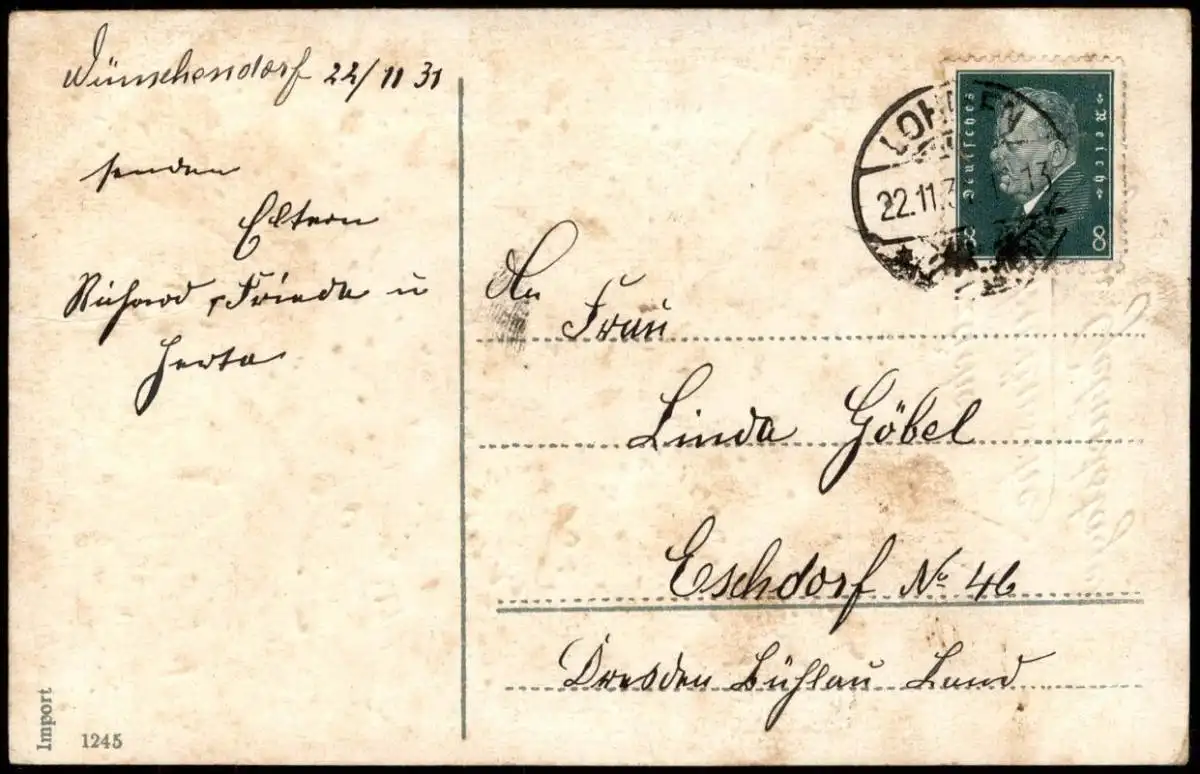 Wünschendorf 22/11 31
senden
Eltern
Richard, Frieda u
Herta
Import
1245
Deutsches Reich
8 8
LOHMEN
22.11.3 13
An
Frau
Linda Göbel
Eschdorf No 46
Dresden Bühlau Land